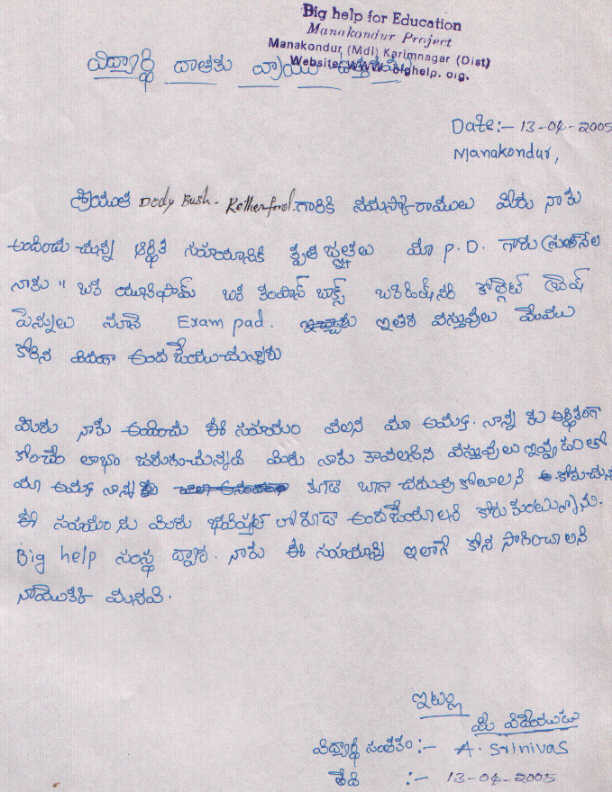 Big help for Education
Manakondur Project
Manakondur (Mdl) Karimnagar (Dist)
Website: www.bighelp.org.
విద్యార్థి దాతకు వ్రాయు ఉత్తరము
Date:- 13-04-2005
Manakondur,
శ్రీయుత Dody Bush. Retherford. గారికి నమస్కారములు మీరు నాకు
అందించు చున్న ఆర్థిక సహయానికి కృతజ్ఞతలు మా P.D. గారు ప్రతినెల
నాకు " ఒక యూనిఫామ్ ఒక కంపాస్ బాక్స్ ఒక కోల్గెట్ బ్రెష్
పెన్నులు Exam pad. ఇతర వస్తువులు మేము
కోరిన విదంగా అంద చేయుచున్నారు
మీరు నాకు అందించు ఈ సహయం వలన మా అమ్మ. నాన్న కు ఆర్థికంగా
కొంచెం లాభం జరుగుచున్నది మీరు నాకు కావలసిన వస్తువులు ఇవ్వడంలో
మా అమ్మ నాన్న కూడా బాగా చదువు కోవాలని
ఈ సహయం ను మీరు భవిష్యత్ లో కూడా అందచేయాలని కోరుకుంటున్నాను.
Big help సంస్థ ద్వారా. నాకు ఈ సహయాన్ని ఇలాగే కొన సాగించాలని
నాయొక్క మనవి.
ఇట్లు
మీ విదేయుడు
విద్యార్థి సంతకం :- A. Srinivas
తేది :- 13-04-2005